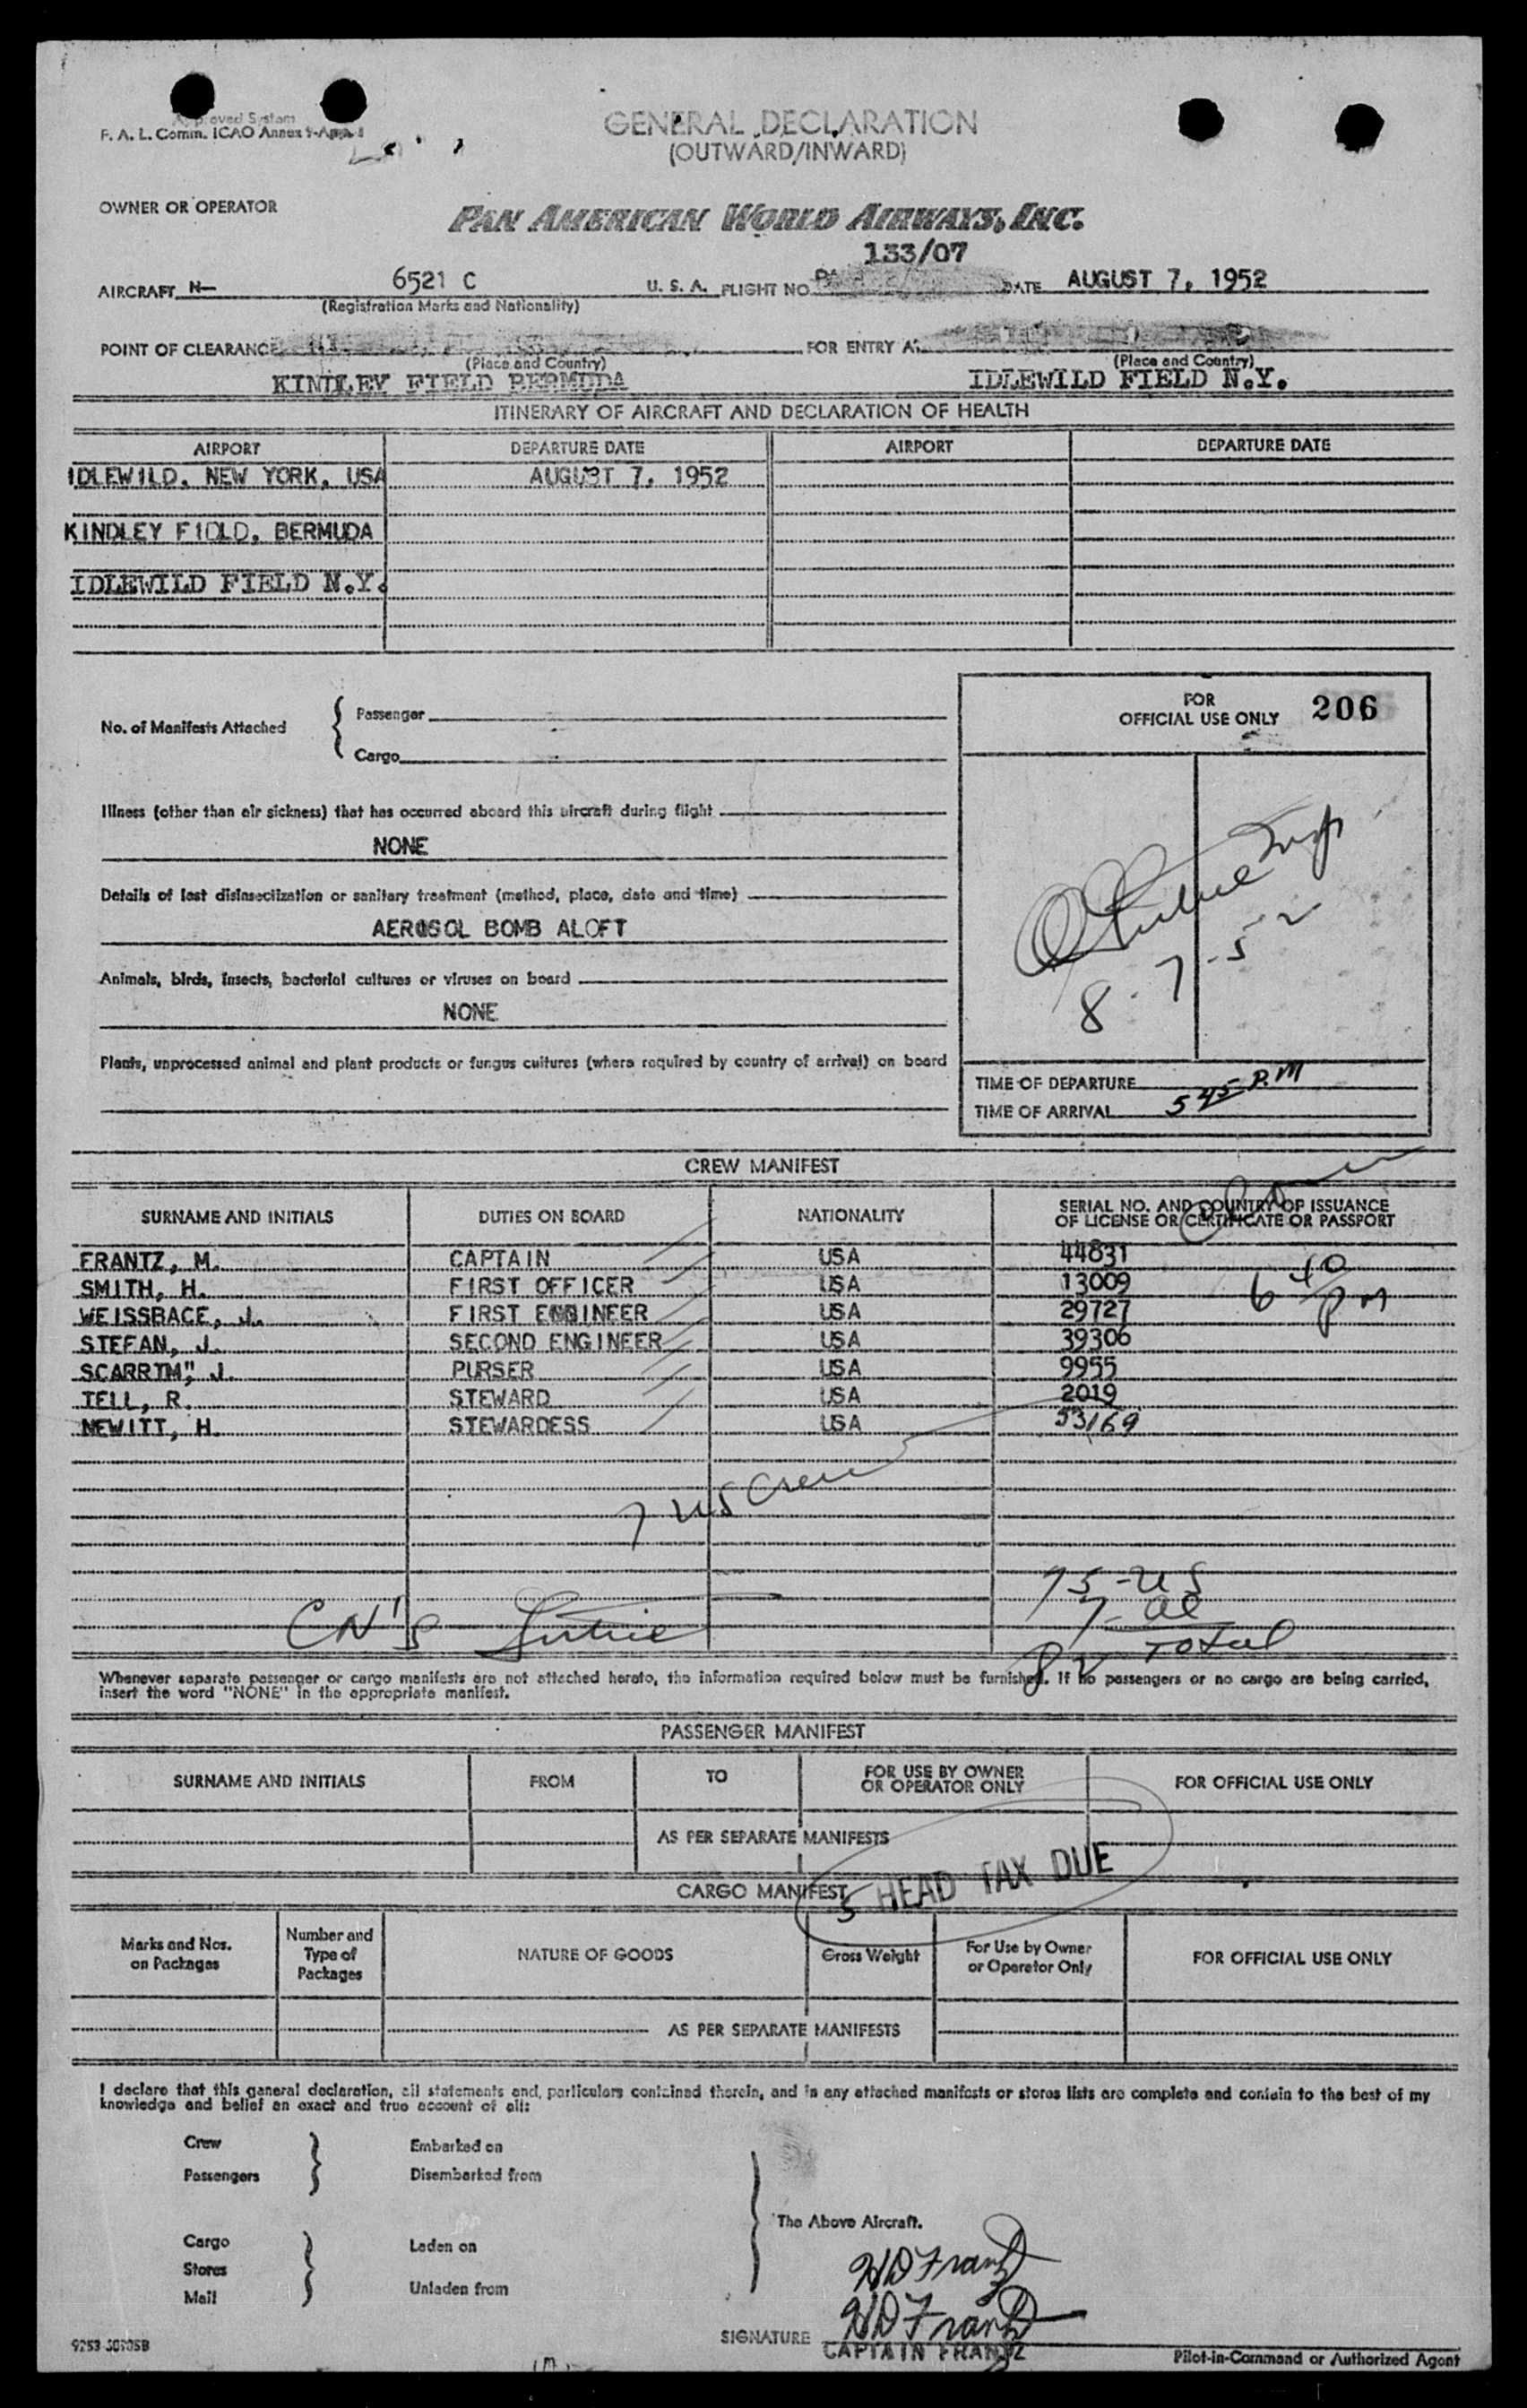 Approved System
F. A. L. Comm. ICAO Annex 9-App. 1
GENERAL DECLARATION
(OUTWARD/INWARD)
OWNER OR OPERATOR
PAN AMERICAN WORLD AIRWAYS, INC.
133/07
AIRCRAFT N- 6521 C U. S. A. FLIGHT NO. DATE AUGUST 7, 1952
(Registration Marks and Nationality)
POINT OF CLEARANCE FOR ENTRY AT
(Place and Country) (Place and Country)
KINDLEY FIELD BERMUDA IDLEWILD FIELD N.Y.
ITINERARY OF AIRCRAFT AND DECLARATION OF HEALTH
AIRPORT DEPARTURE DATE AIRPORT DEPARTURE DATE
IDLEWILD, NEW YORK, USA AUGUST 7, 1952
KINDLEY FIOLD, BERMUDA
IDLEWILD FIELD N.Y.
No. of Manifests Attached { Passenger
Cargo
FOR
OFFICIAL USE ONLY 206
Illness (other than air sickness) that has occurred aboard this aircraft during flight
NONE
Details of last disinsectization or sanitary treatment (method, place, date and time)
AEROSOL BOMB ALOFT
Animals, birds, insects, bacterial cultures or viruses on board
NONE
8-7-52
Plants, unprocessed animal and plant products or fungus cultures (where required by country of arrival) on board
TIME OF DEPARTURE
TIME OF ARRIVAL 545 P.M
CREW MANIFEST
SURNAME AND INITIALS DUTIES ON BOARD NATIONALITY SERIAL NO. AND COUNTRY OF ISSUANCE
OF LICENSE OR CERTIFICATE OR PASSPORT
FRANTZ, M. CAPTAIN USA 44831
SMITH, H. FIRST OFFICER USA 13009
6 40 PM
WEISSBACE, J. FIRST ENGINEER USA 29727
STEFAN, J. SECOND ENGINEER USA 39306
SCARRTM", J. PURSER USA 9955
TELL, R. STEWARD USA 2019
NEWITT, H. STEWARDESS USA 53169
7 US Crew
75-US
7-al
CN's
82 Total
Whenever separate passenger or cargo manifests are not attached hereto, the information required below must be furnished. If no passengers or no cargo are being carried,
insert the word "NONE" in the appropriate manifest.
PASSENGER MANIFEST
SURNAME AND INITIALS FROM TO FOR USE BY OWNER
OR OPERATOR ONLY FOR OFFICIAL USE ONLY
AS PER SEPARATE MANIFESTS
5 HEAD TAX DUE
CARGO MANIFEST
Marks and Nos.
on Packages Number and
Type of
Packages NATURE OF GOODS Gross Weight For Use by Owner
or Operator Only FOR OFFICIAL USE ONLY
AS PER SEPARATE MANIFESTS
I declare that this general declaration, all statements and particulars contained therein, and in any attached manifests or stores lists are complete and contain to the best of my
knowledge and belief an exact and true account of all:
Crew Embarked on
Passengers Disembarked from
The Above Aircraft.
Cargo Laden on
Stores
Mail Unladen from
HD Frantz
HD Frantz
SIGNATURE CAPTAIN FRANTZ
Pilot-in-Command or Authorized Agent